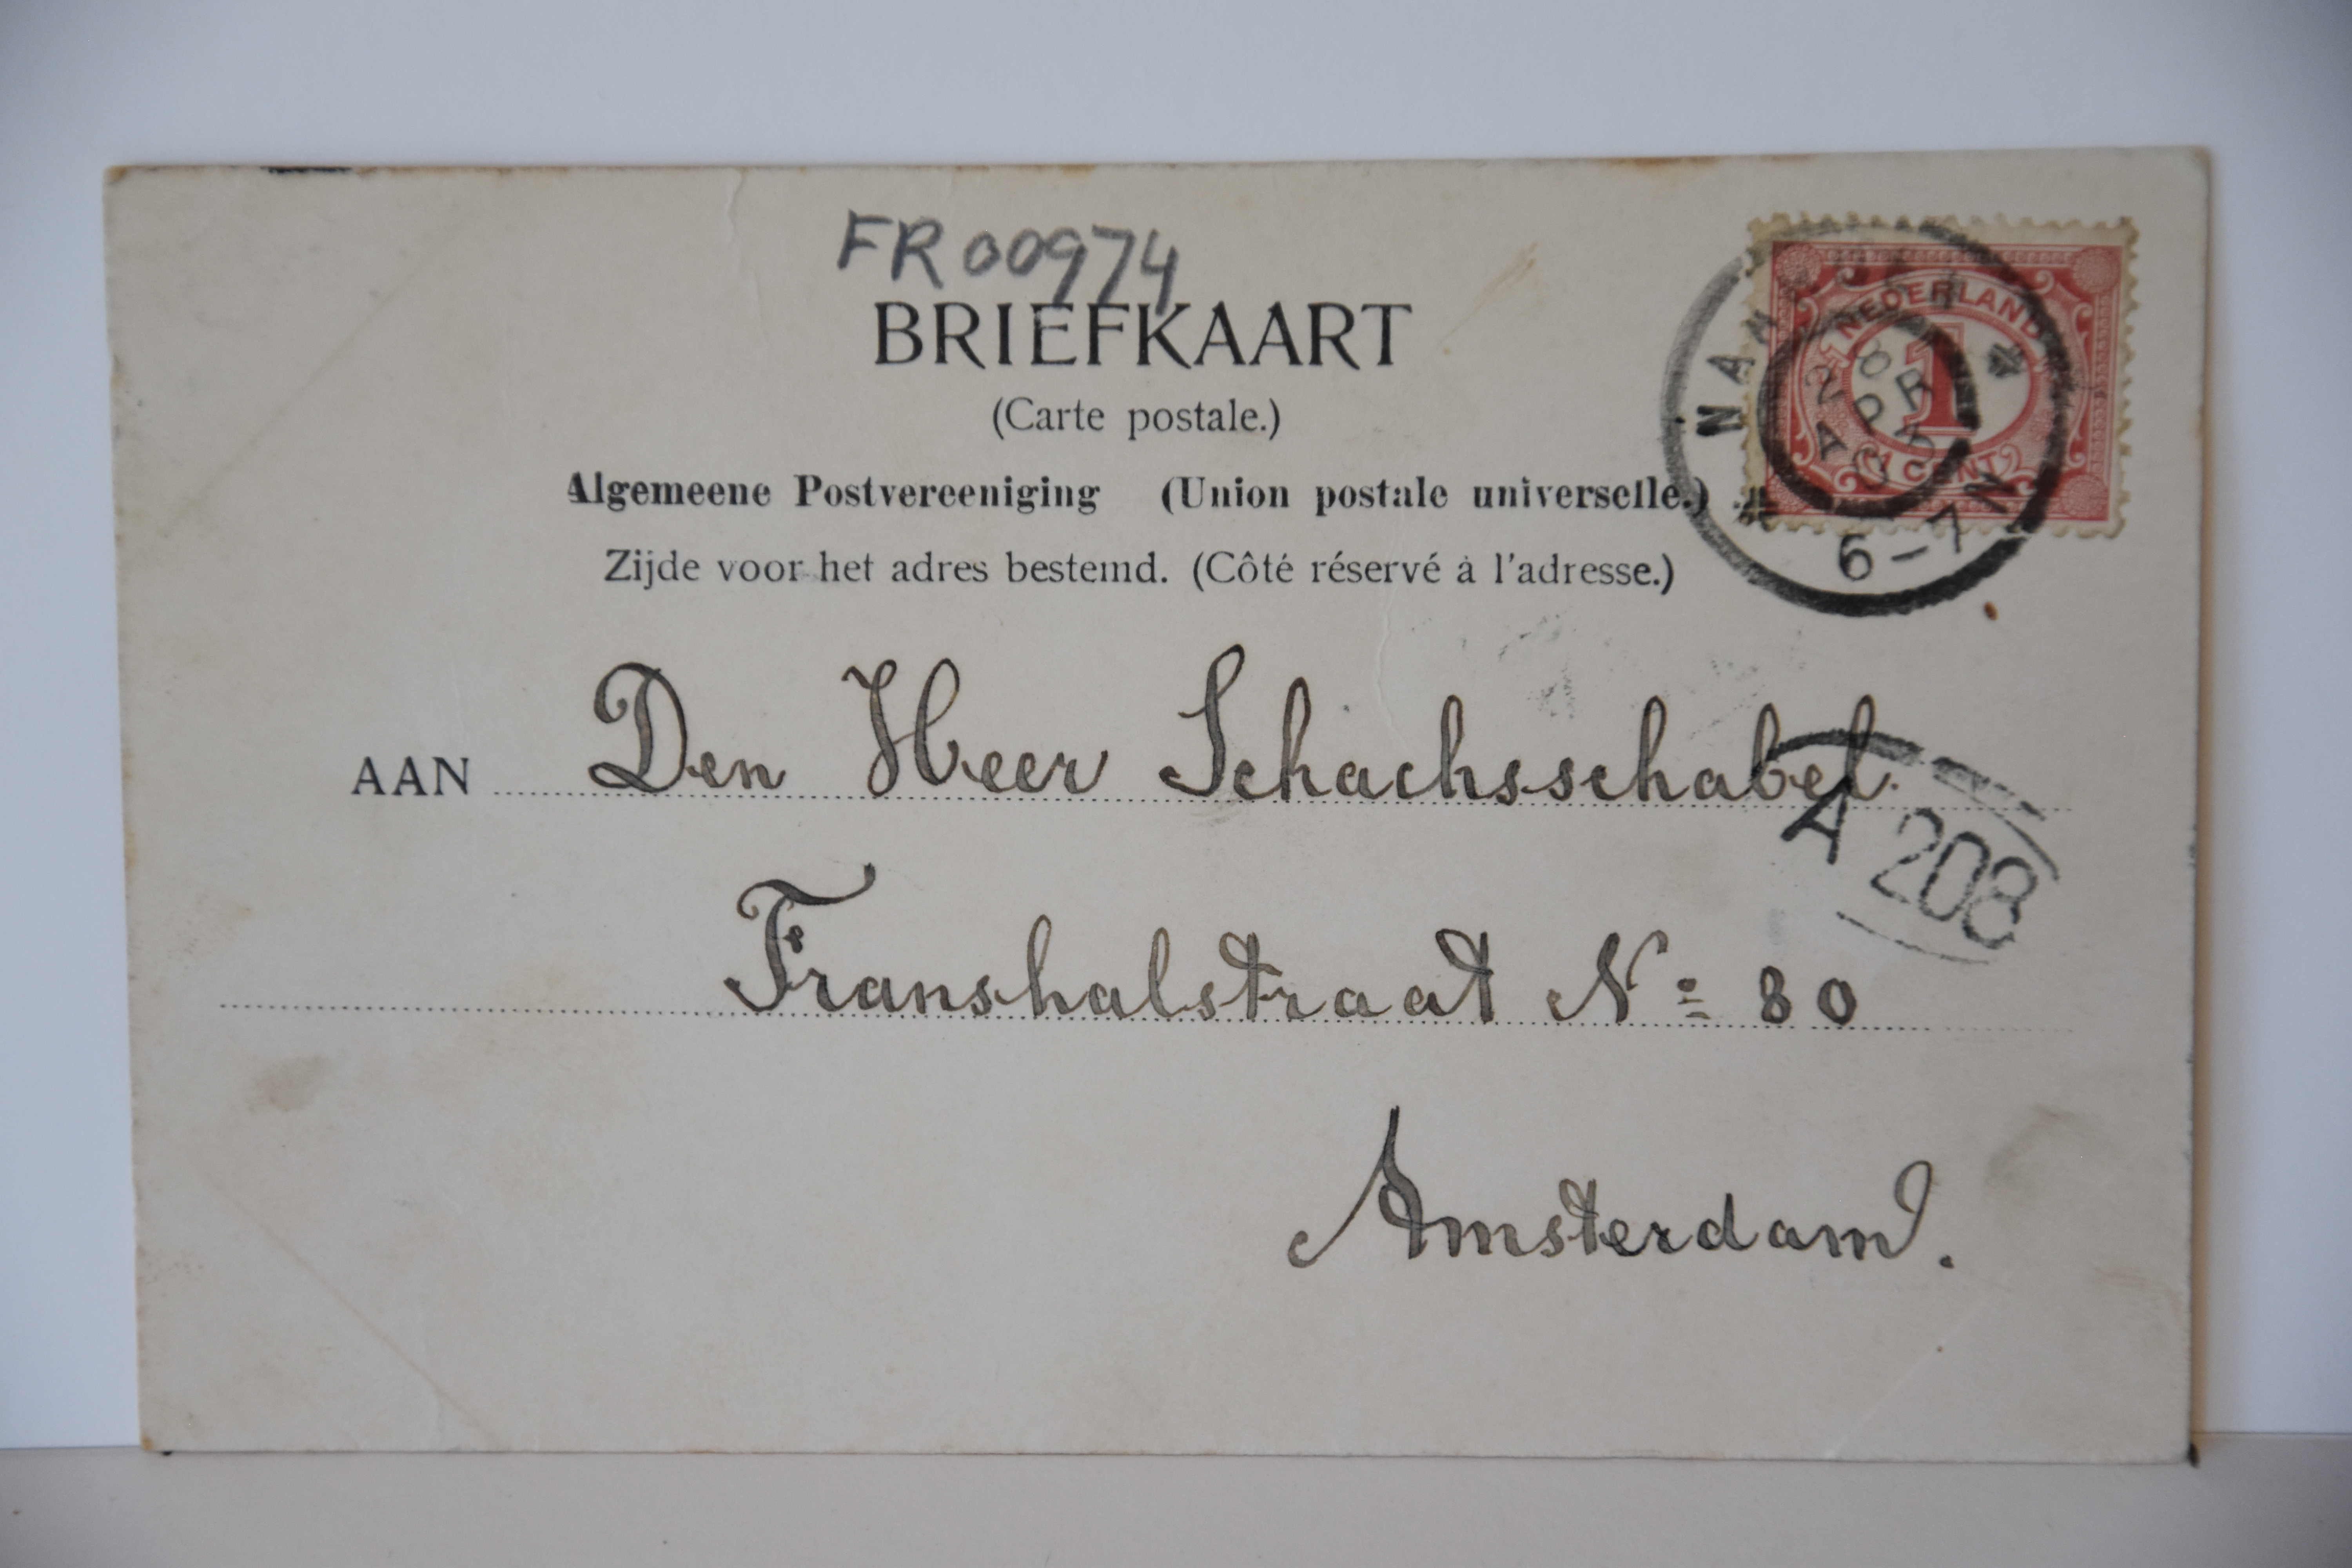 FR00974
BRIEFKAART
(Carte postale.)
Algemeene Postvereeniging (Union postale universelle.)
Zijde voor het adres bestemd. (Côté réservé à l'adresse.)
NEDERLAND
1
1 CENT
28
APR
6-7N
AAN Den Heer Schachsschabel.
A 208
Franshalstraat No 80
Amsterdam.